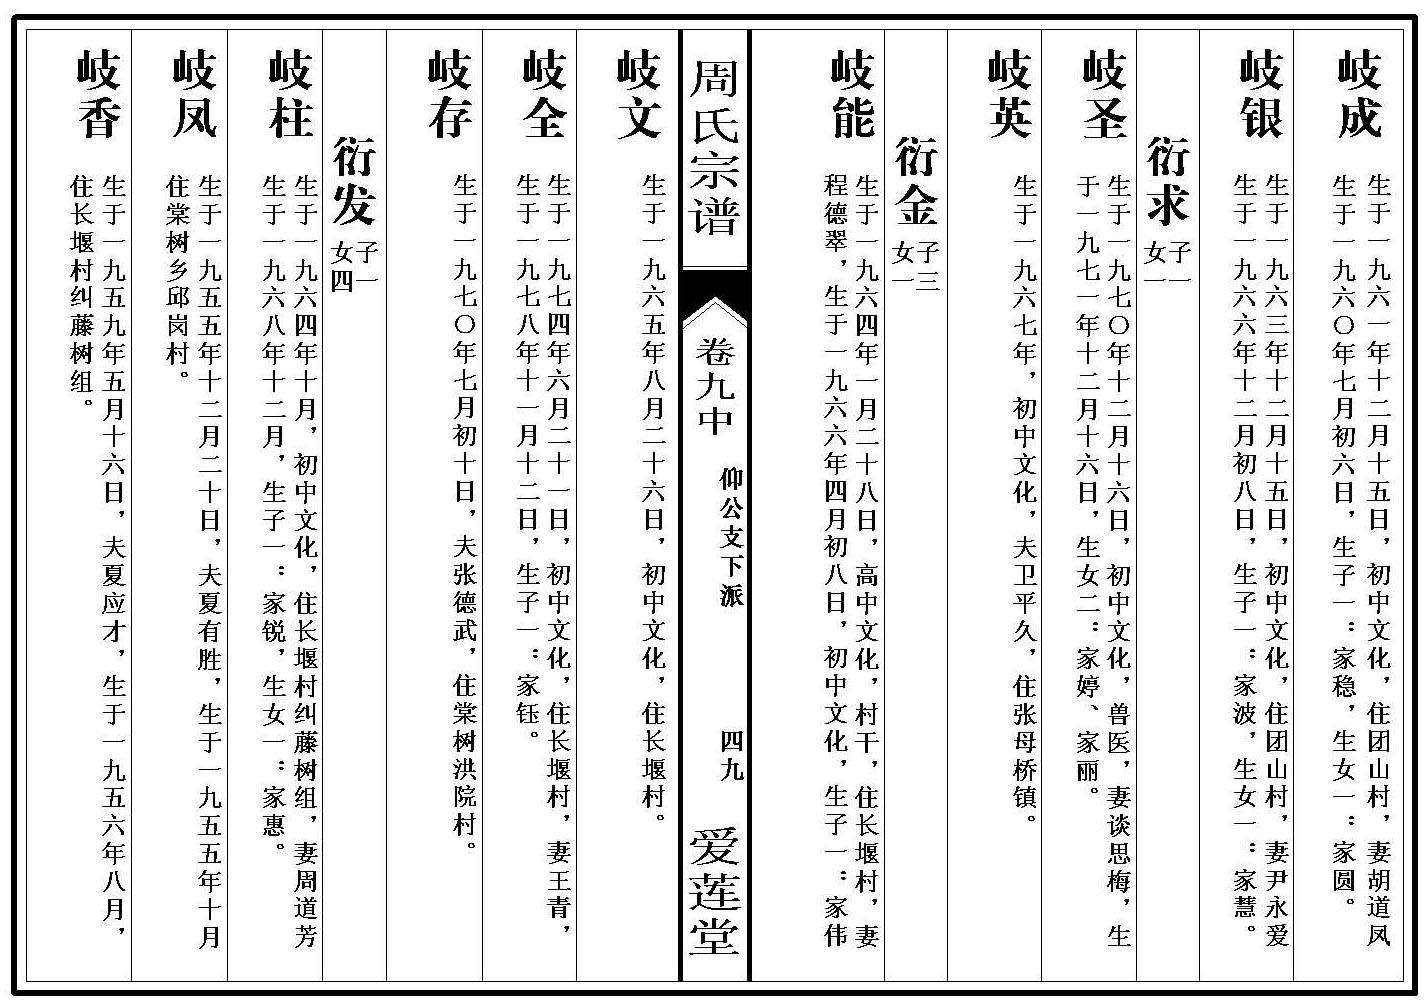 岐成
生于一九六一年十二月十五日，初中文化，住团山村，妻胡道凤
生于一九六〇年七月初六日，生子一：家稳，生女一：家圆。
岐银
生于一九六三年十二月十五日，初中文化，住团山村，妻尹永爱
生于一九六六年十二月初八日，生子一：家波，生女一：家慧。
衍求
子一
女一
岐圣
生于一九七〇年十二月十六日，初中文化，兽医，妻谈思梅，生
于一九七一年十二月十六日，生女二：家婷、家丽。
岐英
生于一九六七年，初中文化，夫卫平久，住张母桥镇。
衍金
子三
女一
岐能
生于一九六四年一月二十八日，高中文化，村干，住长堰村，妻
程德翠，生于一九六六年四月初八日，初中文化，生子一：家伟
周氏宗谱
卷九中
仰公支下派
四九
爱莲堂
岐文
生于一九六五年八月二十六日，初中文化，住长堰村。
岐全
生于一九七四年六月二十一日，初中文化，住长堰村，妻王青，
生于一九七八年十一月十二日，生子一：家钰。
岐存
生于一九七〇年七月初十日，夫张德武，住棠树洪院村。
衍发
子一
女四
岐柱
生于一九六四年十月，初中文化，住长堰村纠藤树组，妻周道芳
生于一九六八年十二月，生子一：家锐，生女一：家惠。
岐凤
生于一九五五年十二月二十日，夫夏有胜，生于一九五五年十月
住棠树乡邱岗村。
岐香
生于一九五九年五月十六日，夫夏应才，生于一九五六年八月，
住长堰村纠藤树组。